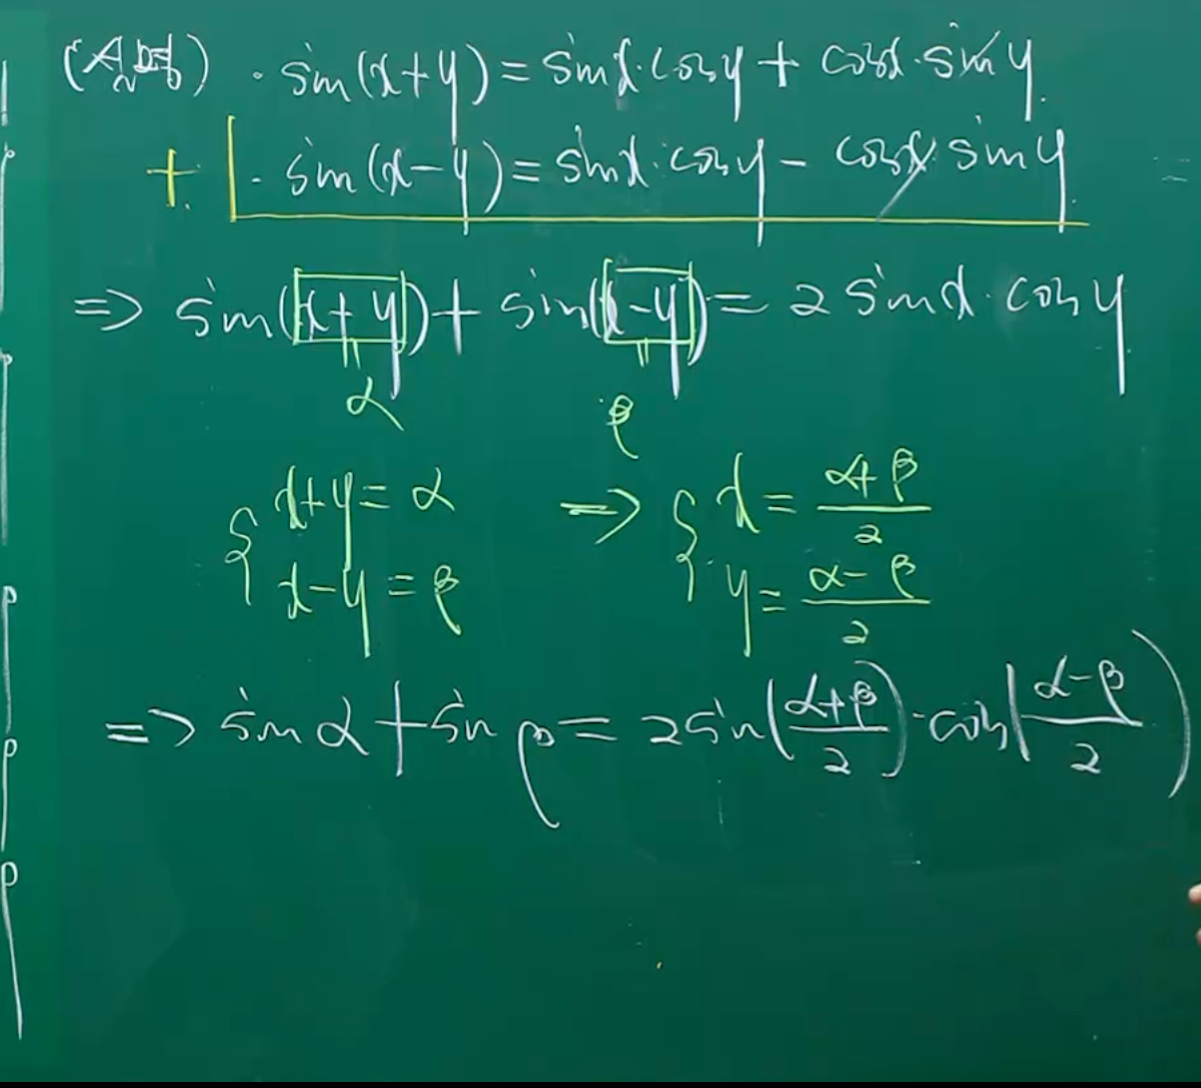 · sin(x+y) = sinx·cosy + cosx·siny
+ · sin(x-y) = sinx·cosy - cosx siny
=> sin(x+y) + sin(x-y) = 2 sinx·cosy
α β
{ x+y = α => { x = (α+β)/2
x-y = β y = (α-β)/2
=> sin α + sin β = 2 sin((α+β)/2)·cos((α-β)/2)